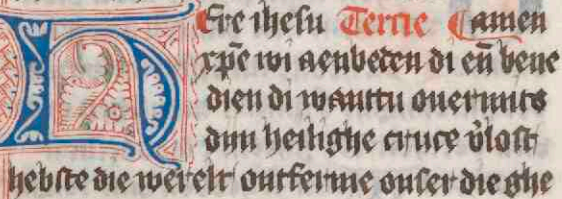 Ere ihesu Tercie ¶amen
xp̄e wi aenbeden di eñ bene
dien di wanttu ouermits
dijn heilighe cruce v̄lost
hebste die werelt ontferme onser die ghe